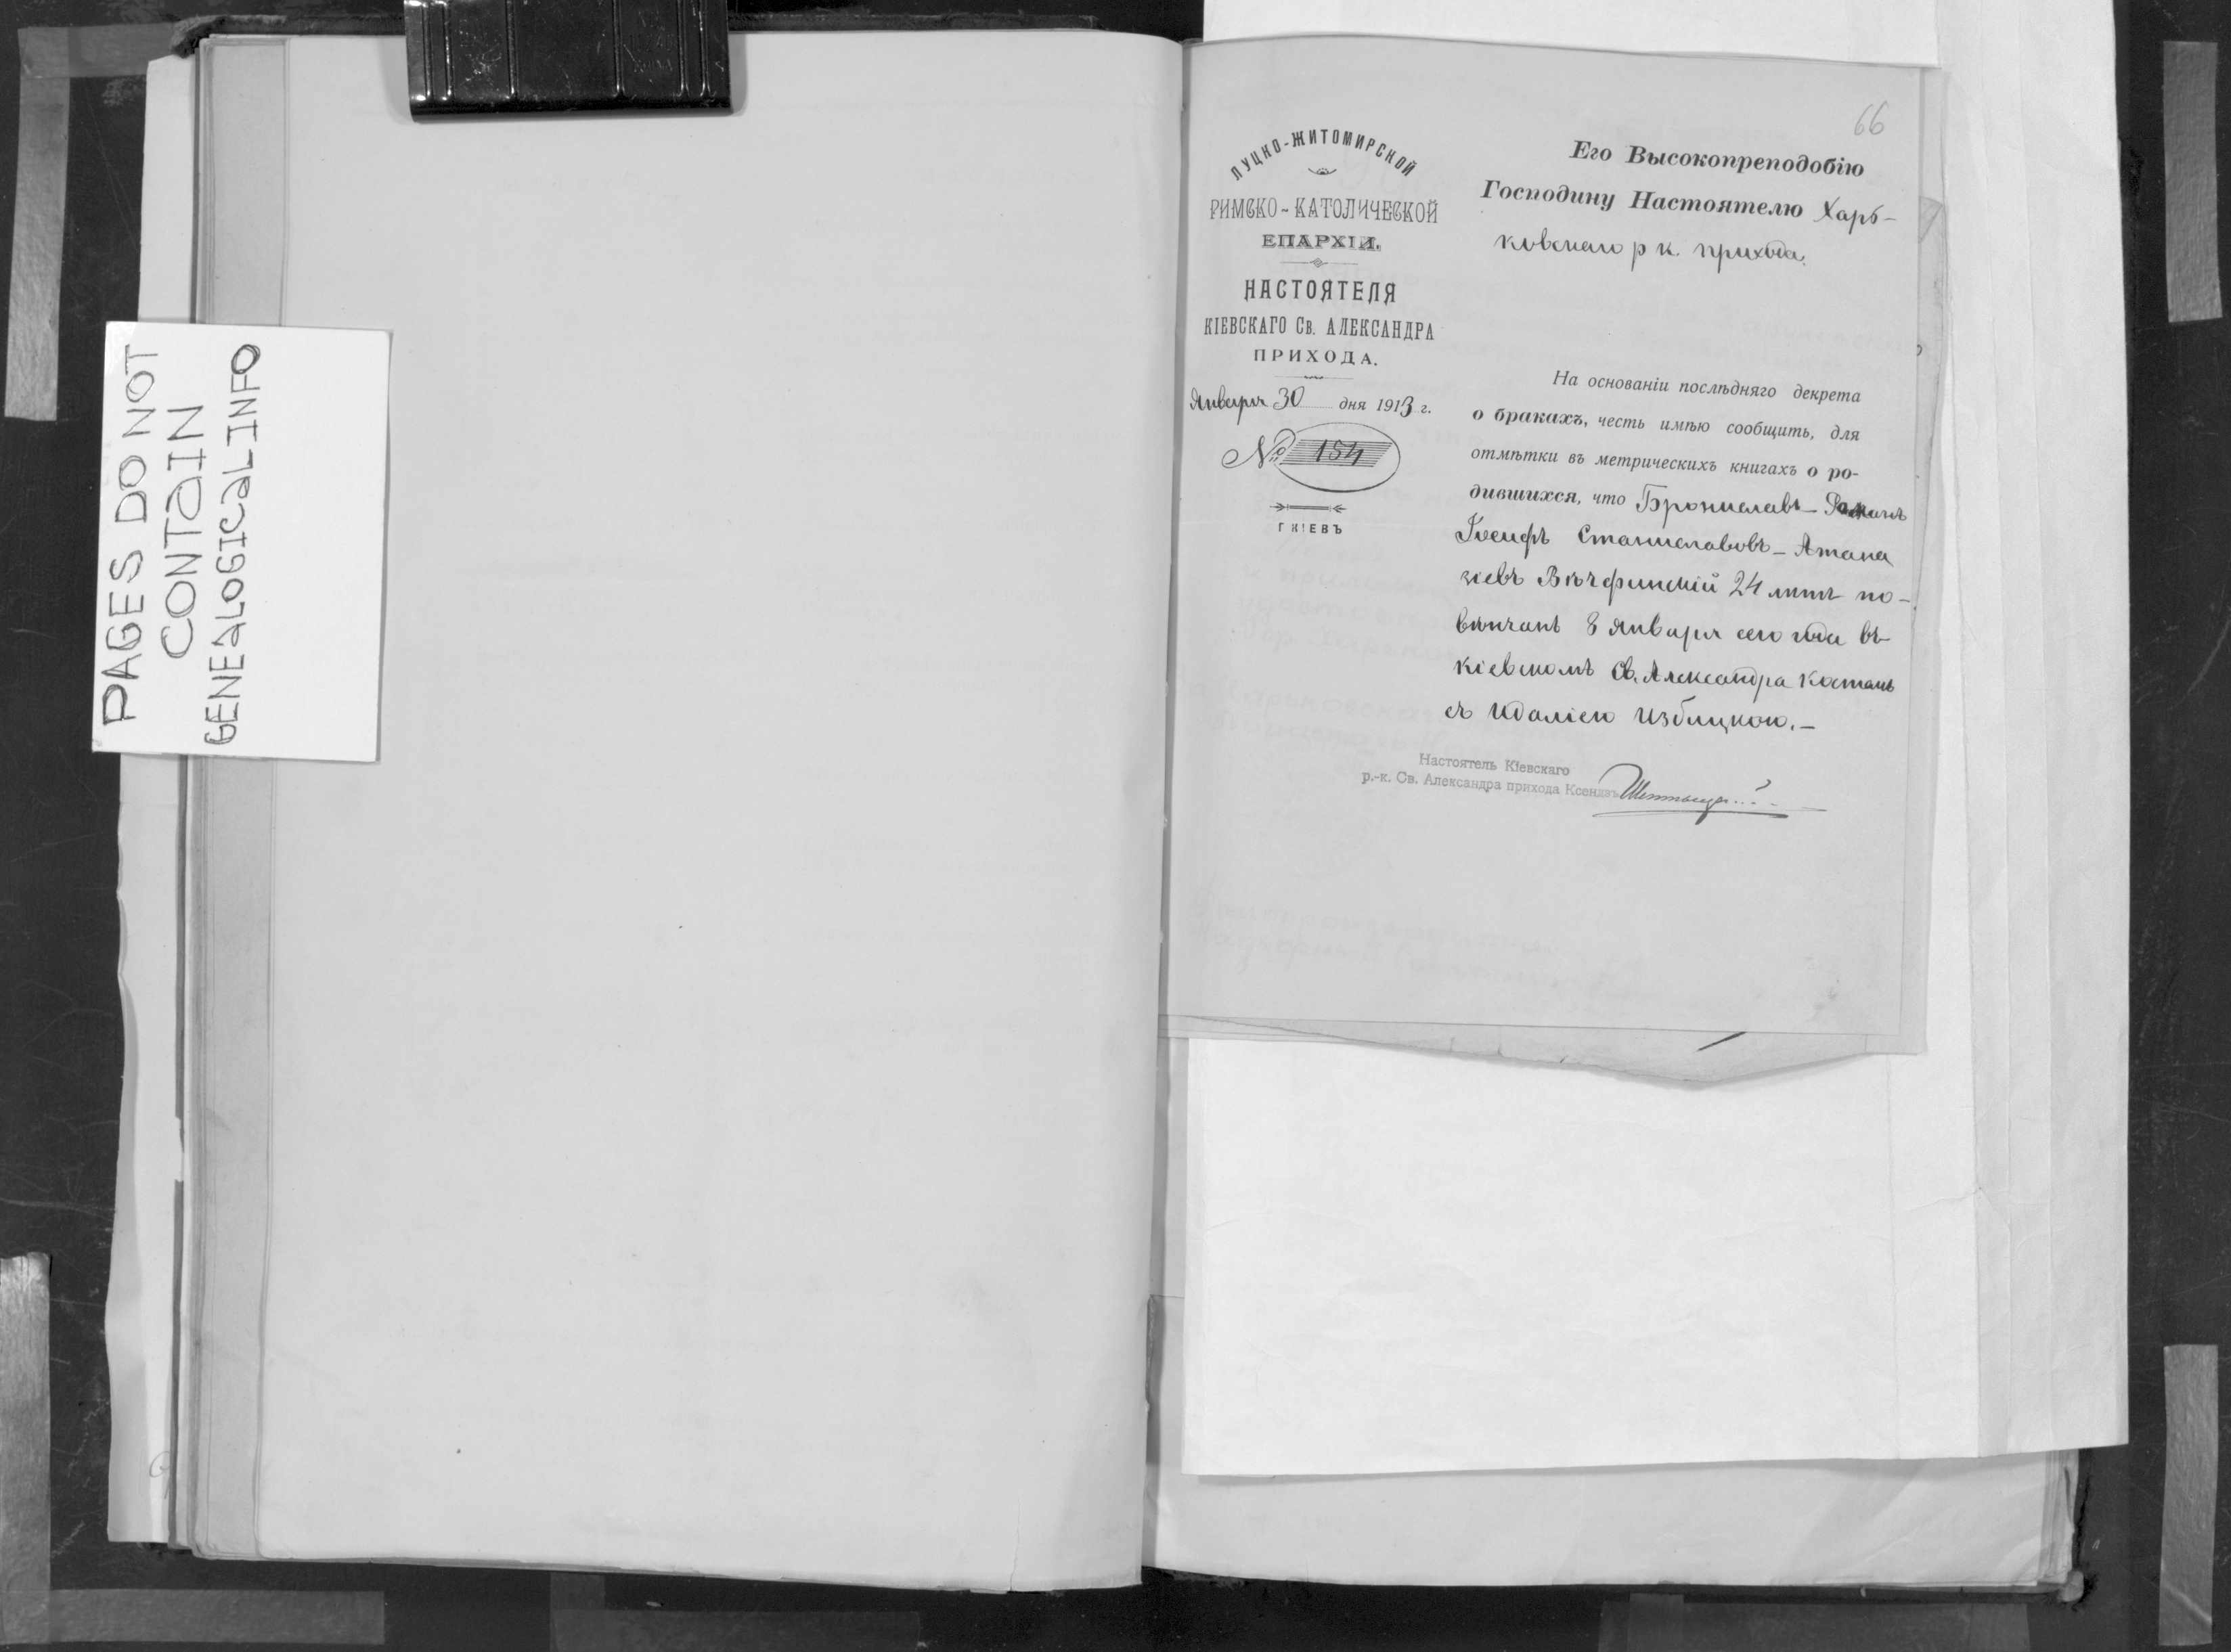 PAGES DO NOT
CONTAIN
GENEALOGICAL INFO
66
ЛУЦКО-ЖИТОМИРСКОЙ
РИМСКО-КАТОЛИЧЕСКОЙ
ЕПАРХІИ.
НАСТОЯТЕЛЯ
КІЕВСКАГО Св. АЛЕКСАНДРА
ПРИХОДА.
Января 30 дня 1913 г.
№ 154
Г КІЕВЪ
Его Высокопреподобію
Господину Настоятелю Харь-
ковскаго р к. прихода.
На основаніи послѣдняго декрета
о бракахъ, честь имѣю сообщить, для
отмѣтки въ метрическихъ книгахъ о ро-
дившихся, что Брониславъ-Романъ
Іосифъ Станиславовъ-Атана
зіевъ 24 лѣтъ по-
вѣнчанъ 8 января сего года въ
кіевскомъ Св. Александра костелѣ
съ Идаліею Избицкою.-
Настоятель Кіевскаго
р.-к. Св. Александра прихода Ксендзъ